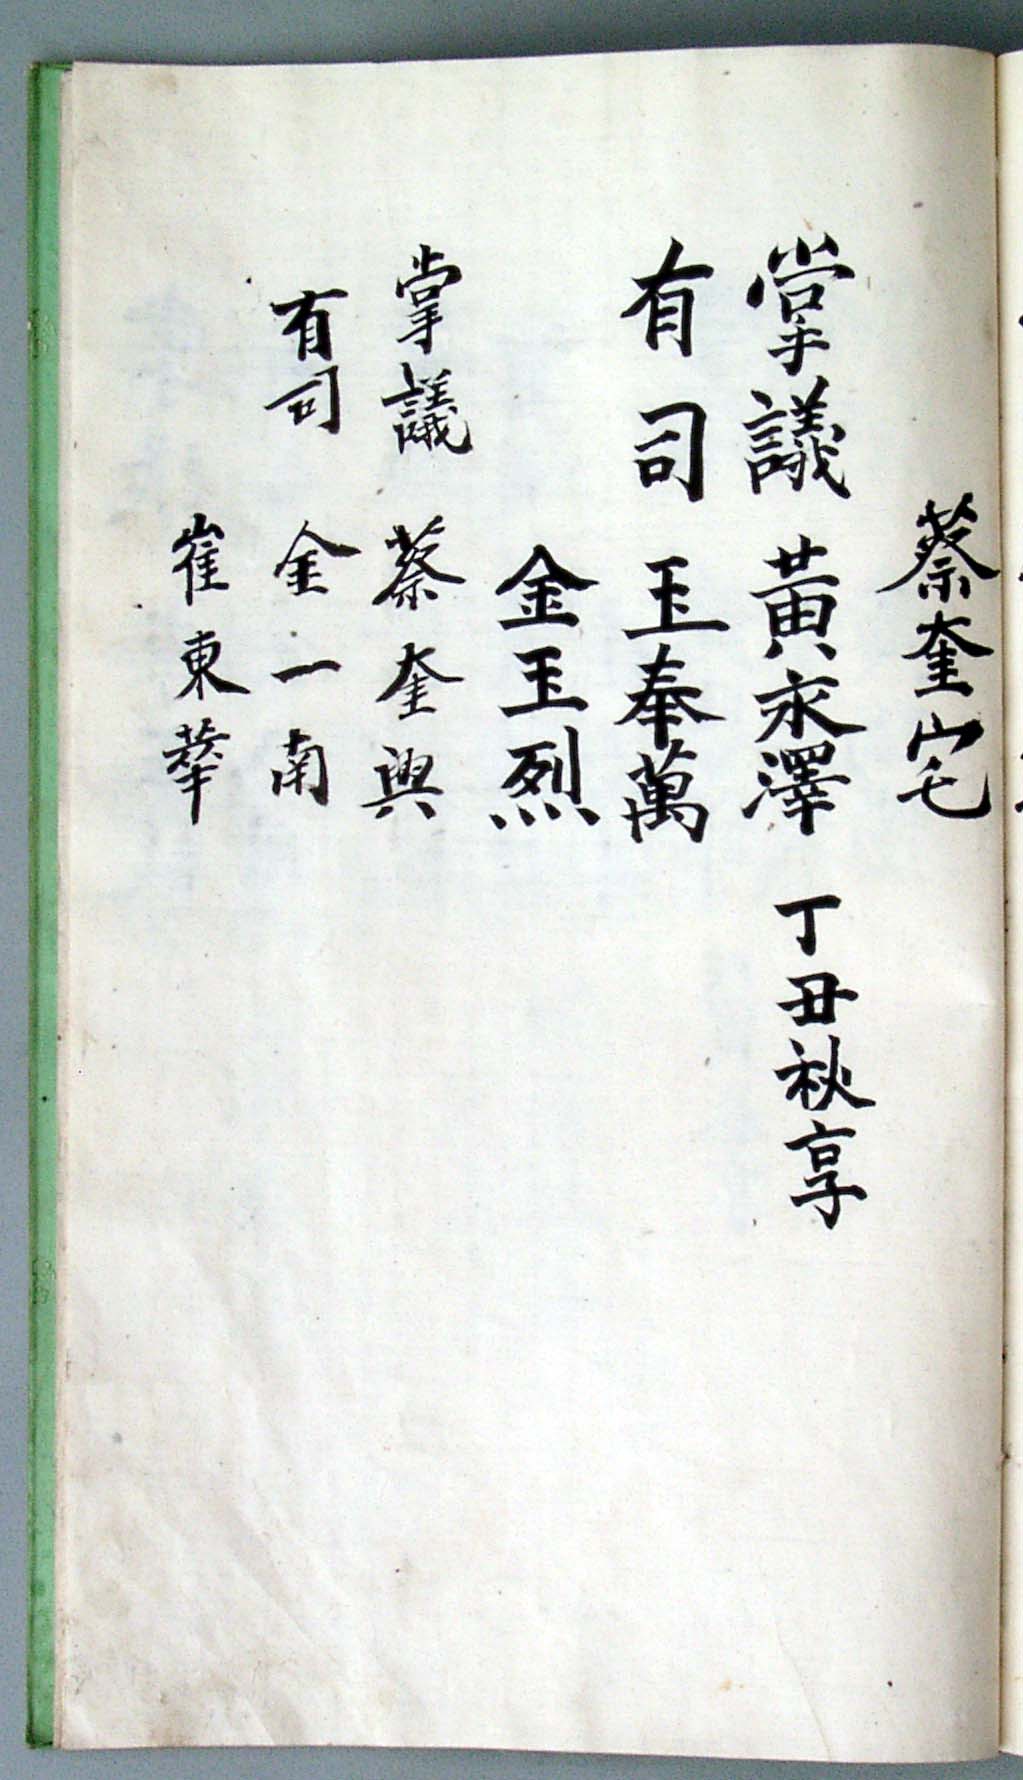 蔡奎宅
掌議 黃永澤 丁丑秋享
有司 玉奉萬
金玉烈
掌議 蔡奎興
有司 金一南
崔東華